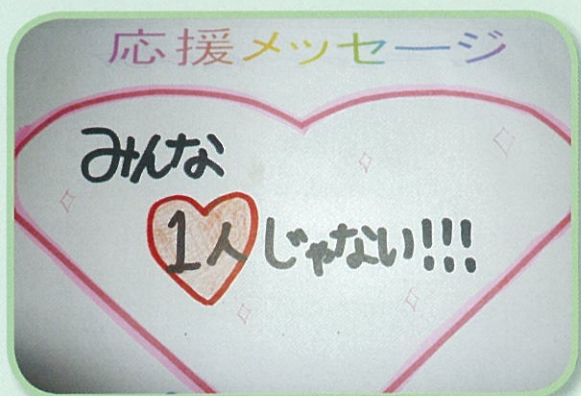 応援メッセージ
みんな
1人じゃない!!!